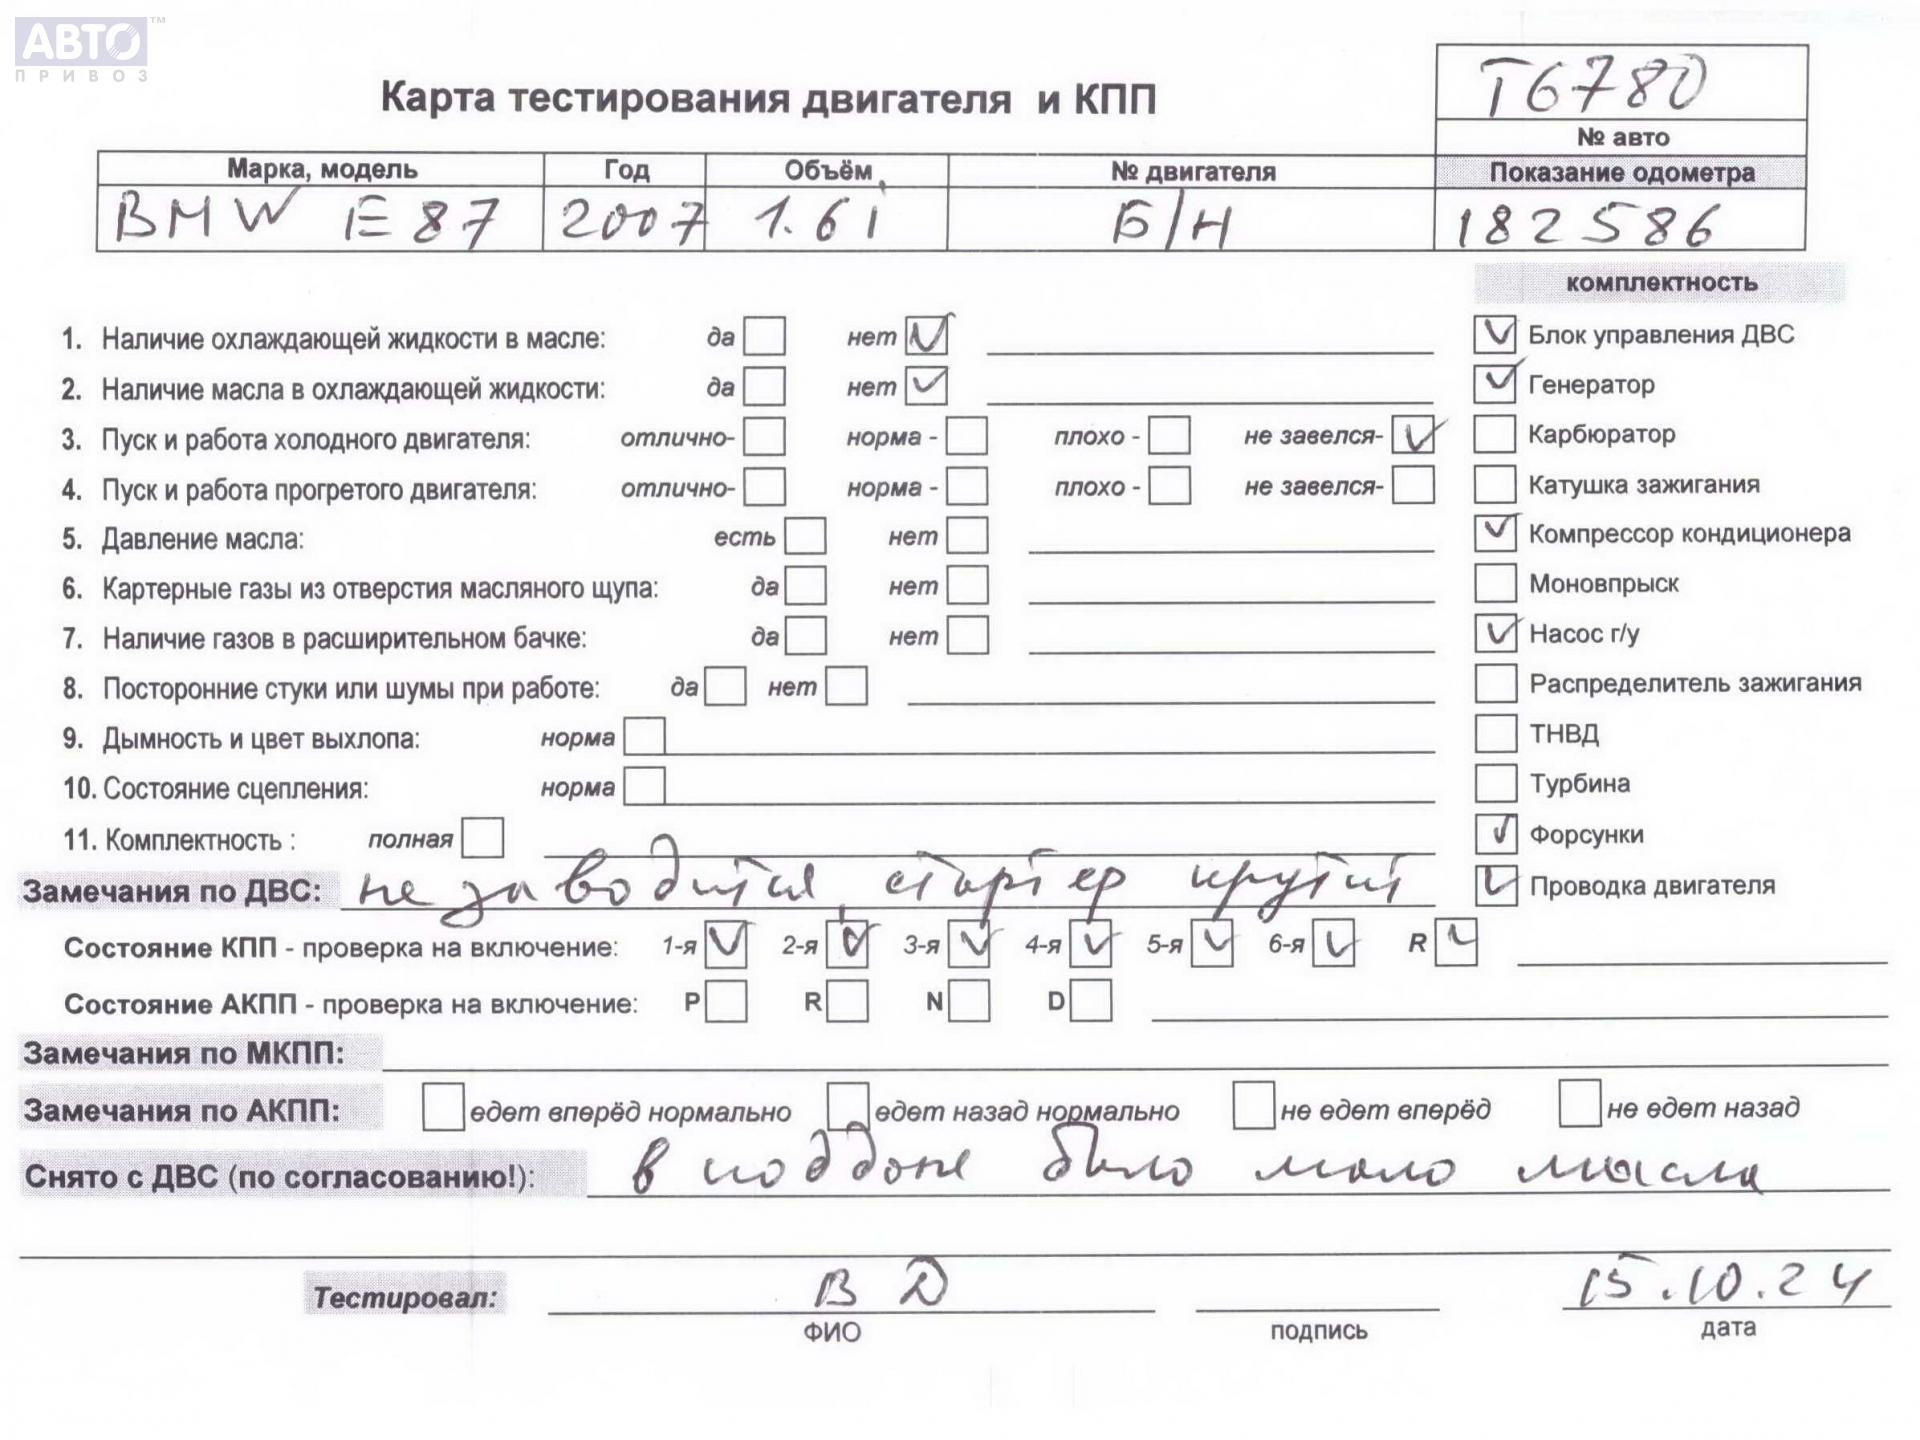 АВТО™
ПРИВОЗ
Т6780
Карта тестирования двигателя и КПП
№ авто
Марка, модель Год Объём № двигателя Показание одометра
BMW E87 2007 1.6i Б/Н 182586
комплектность
1. Наличие охлаждающей жидкости в масле: да нет ✓ ✓ Блок управления ДВС
2. Наличие масла в охлаждающей жидкости: да нет ✓ ✓ Генератор
3. Пуск и работа холодного двигателя: отлично- норма - плохо - не завелся- ✓ Карбюратор
4. Пуск и работа прогретого двигателя: отлично- норма - плохо - не завелся- Катушка зажигания
5. Давление масла: есть нет ✓ Компрессор кондиционера
6. Картерные газы из отверстия масляного щупа: да нет Моновпрыск
7. Наличие газов в расширительном бачке: да нет ✓ Насос г/у
8. Посторонние стуки или шумы при работе: да нет Распределитель зажигания
9. Дымность и цвет выхлопа: норма ТНВД
10. Состояние сцепления: норма Турбина
11. Комплектность : полная ✓ Форсунки
Замечания по ДВС: не заводится, стартер крутит ✓ Проводка двигателя
Состояние КПП - проверка на включение: 1-я ✓ 2-я ✓ 3-я ✓ 4-я ✓ 5-я ✓ 6-я ✓ R ✓
Состояние АКПП - проверка на включение: P R N D
Замечания по МКПП:
Замечания по АКПП: едет вперёд нормально едет назад нормально не едет вперёд не едет назад
Снято с ДВС (по согласованию!): в поддоне было мало масла
Тестировал: В Д 15.10.24
ФИО подпись дата